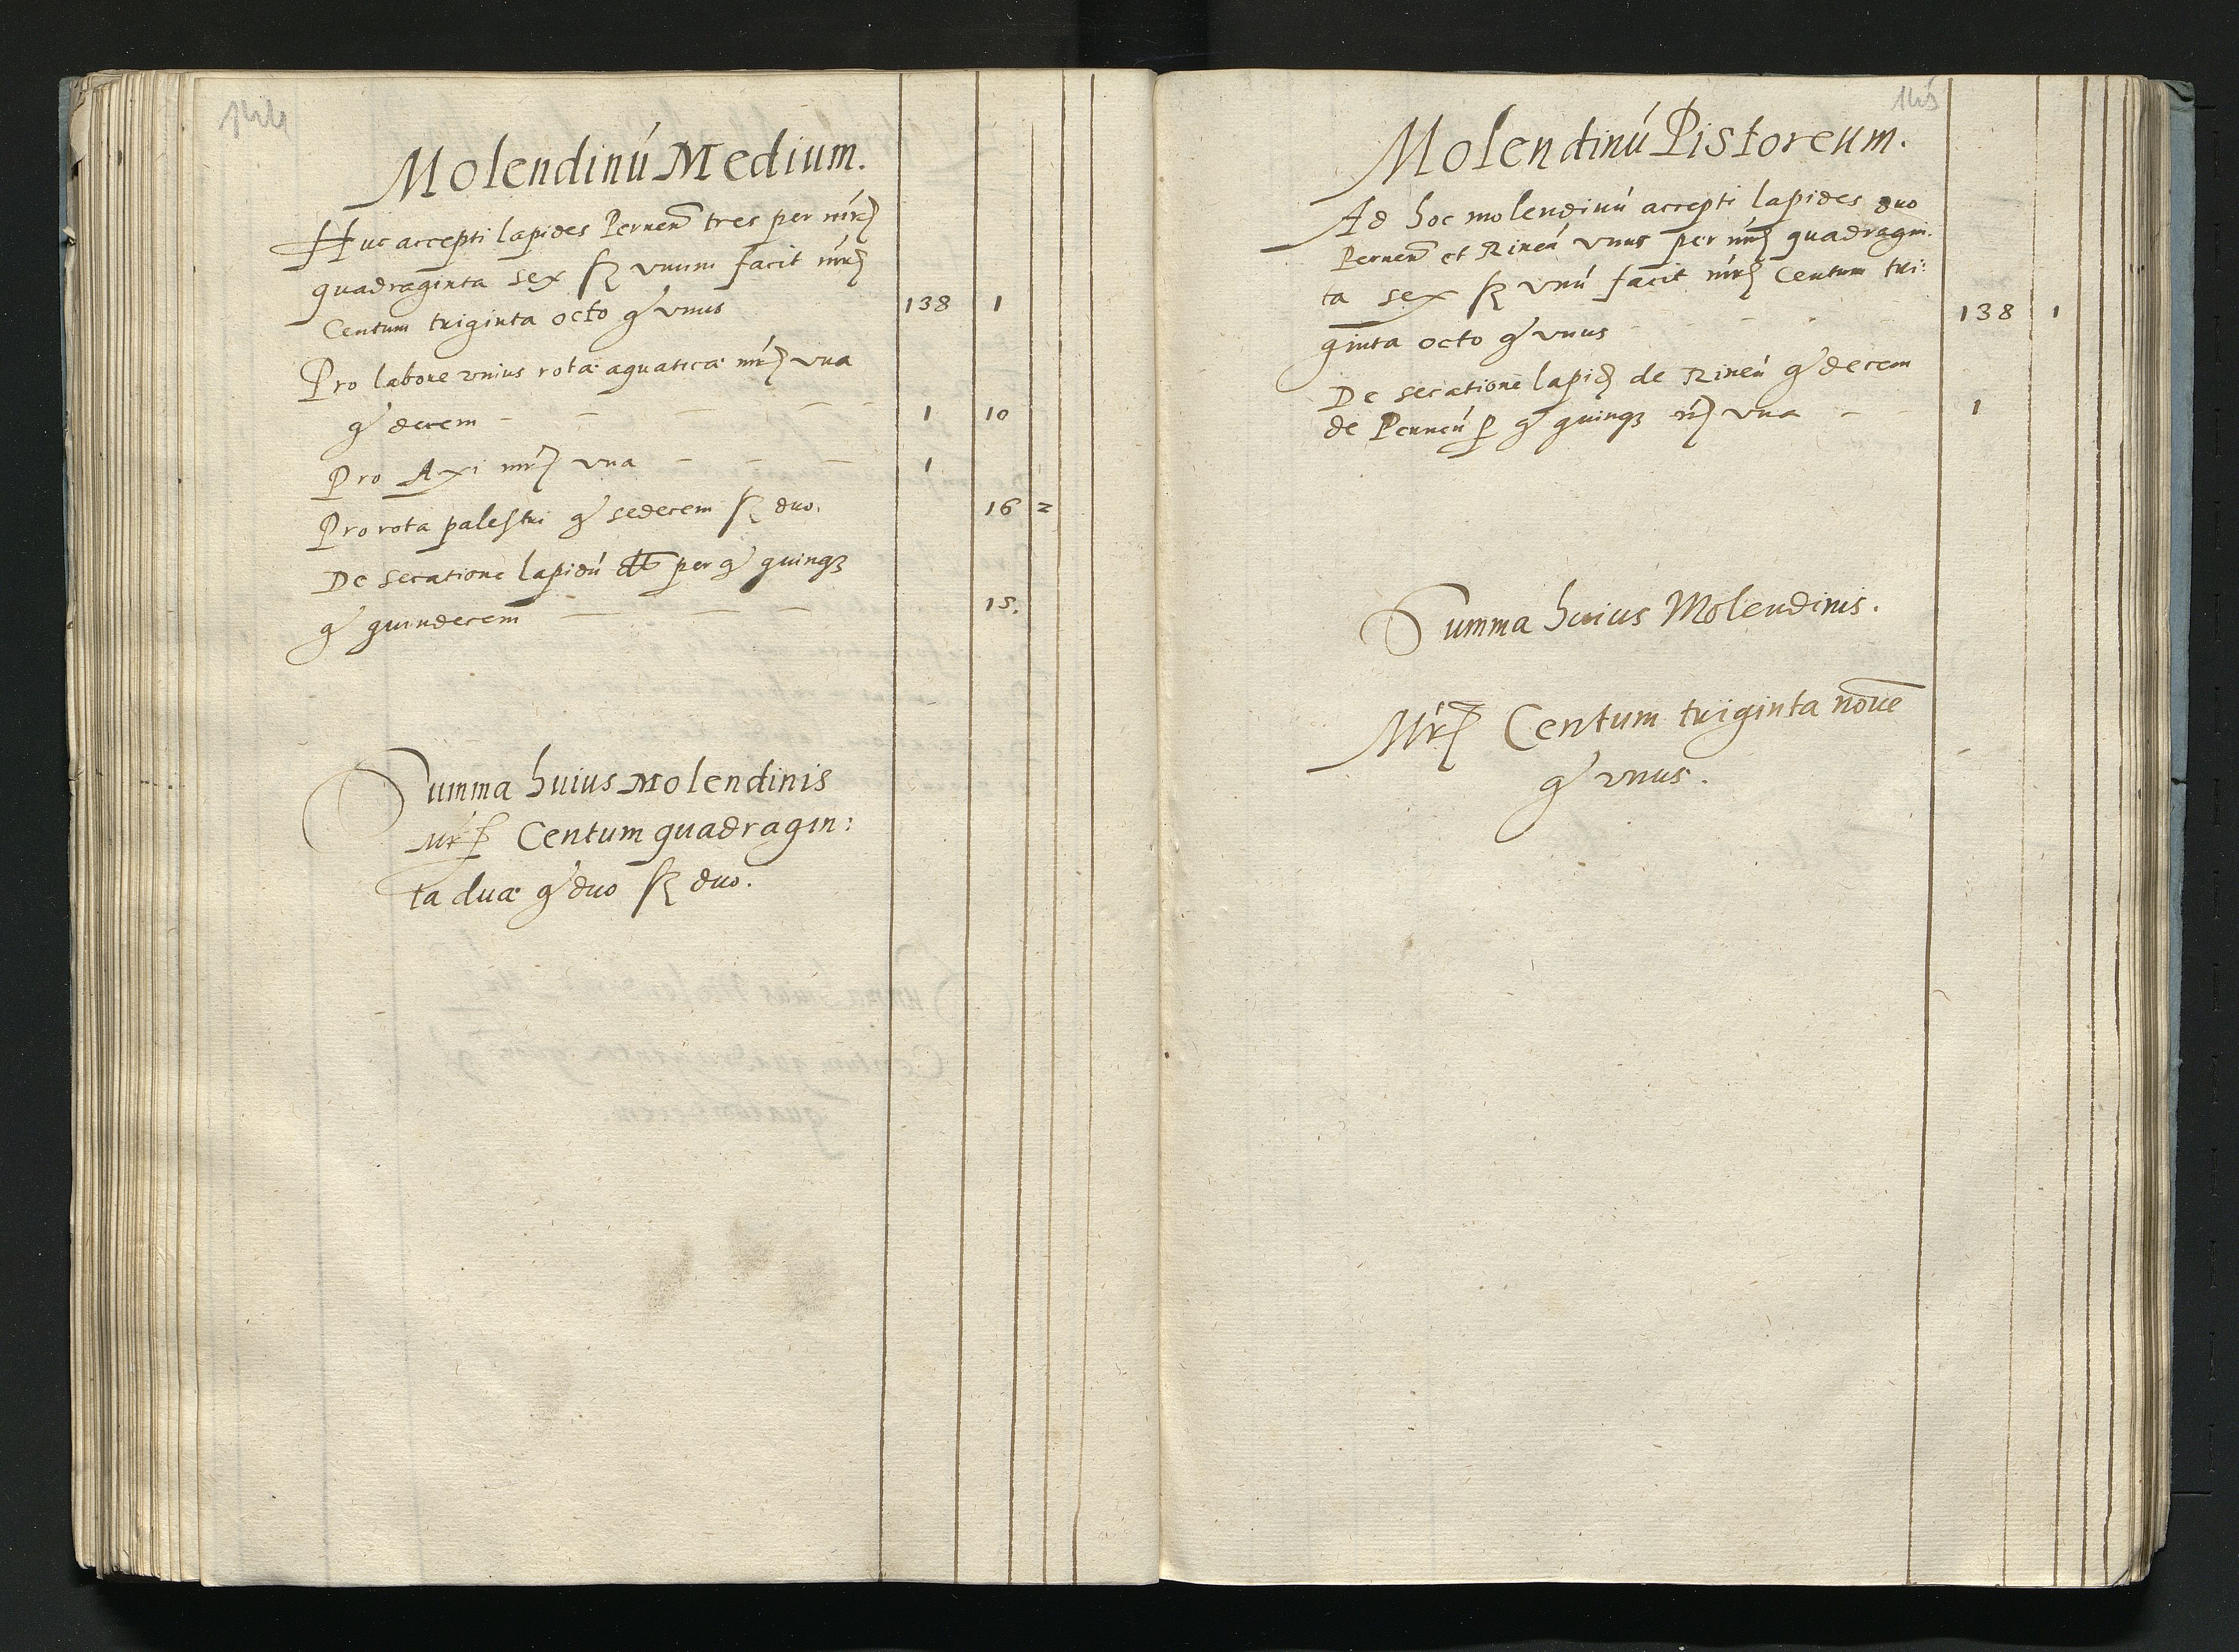 144
Molendinú Medium.
Huc accepti lapides Pernen̄ tres per mŕȝ
quadraginta sex ſȝ vnum facit mŕȝ
Centum triginta octo gͬ vnus 138 1
Pro labore vnius rotæ aquaticæ mŕȝ vna
gͬ decem – – – – – 1 10
Pro Axi mŕȝ vna – – – 1
Pro rota palestri gͬ sedecem ſȝ duo. 16 2
De secatione lapidú per gͬ quinqȝ
gͬ quindecem – – – 15.
Summa huius Molendinis
Mŕȝ Centum quadragin:
ta duæ gͬ duo ſȝ duo.
145
Molendinú Pistoreum.
Ad hoc molendinú accepti lapides duo
Pernen̄ et Rineń vnus per mŕȝ quadragin.
ta sex ſȝ vnú facit mŕȝ Centum tri:
ginta octo gͬ vnus – – – – 138 1
De secatione lapidȝ de Rineń gͬ decem
de Perneń ꝑ gͬ quinqȝ ḿȝ vna – – 1
Summa huius Molendinis.
Mŕȝ Centum triginta noūe
gͬ vnus.